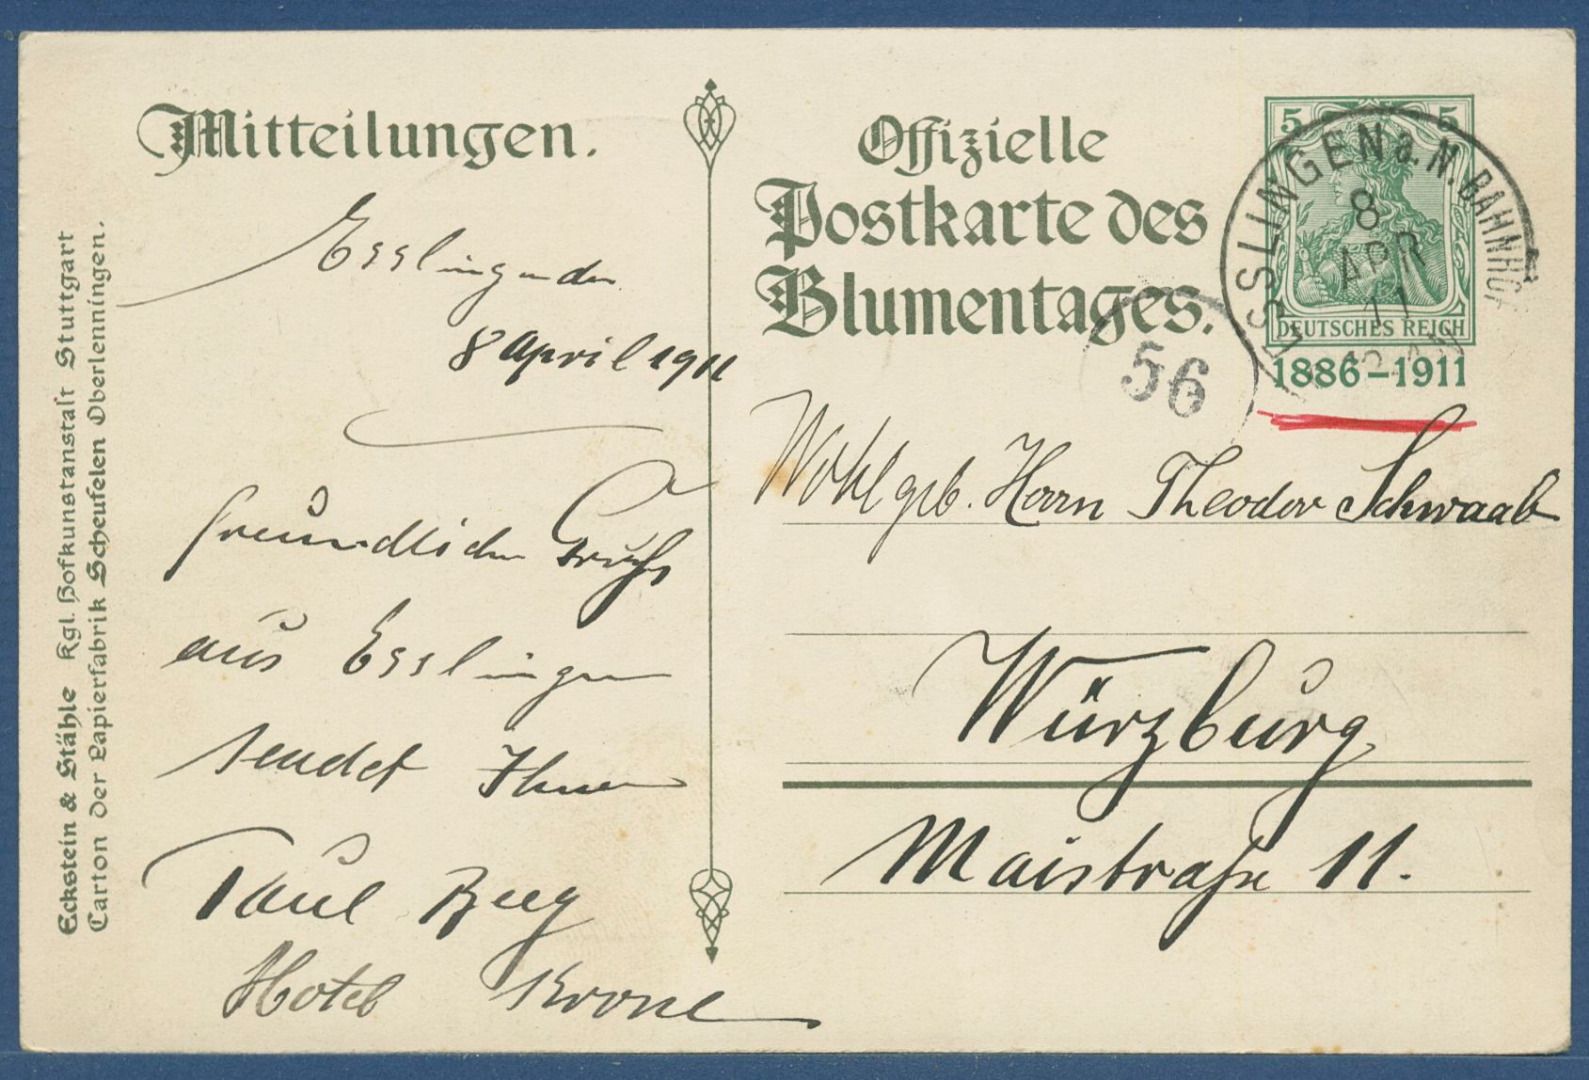 Mitteilungen.
Esslingen den
8 April 1911
freundlichen Gruß
aus Esslingen
sendet Ihnen
Paul
Hotel Krone
Eckstein & Stähle Kgl. Hofkunstanstalt Stuttgart
Carton der Papierfabrik Scheufelen Oberlenningen.
Offizielle
Postkarte des
Blumentages.
5 5
DEUTSCHES REICH
1886-1911
ESSLINGEN a. N. BAHNHOF
8
APR
11
56
Wohlgeb. Herrn Theodor Schwaab
Würzburg
Maistraße 11.